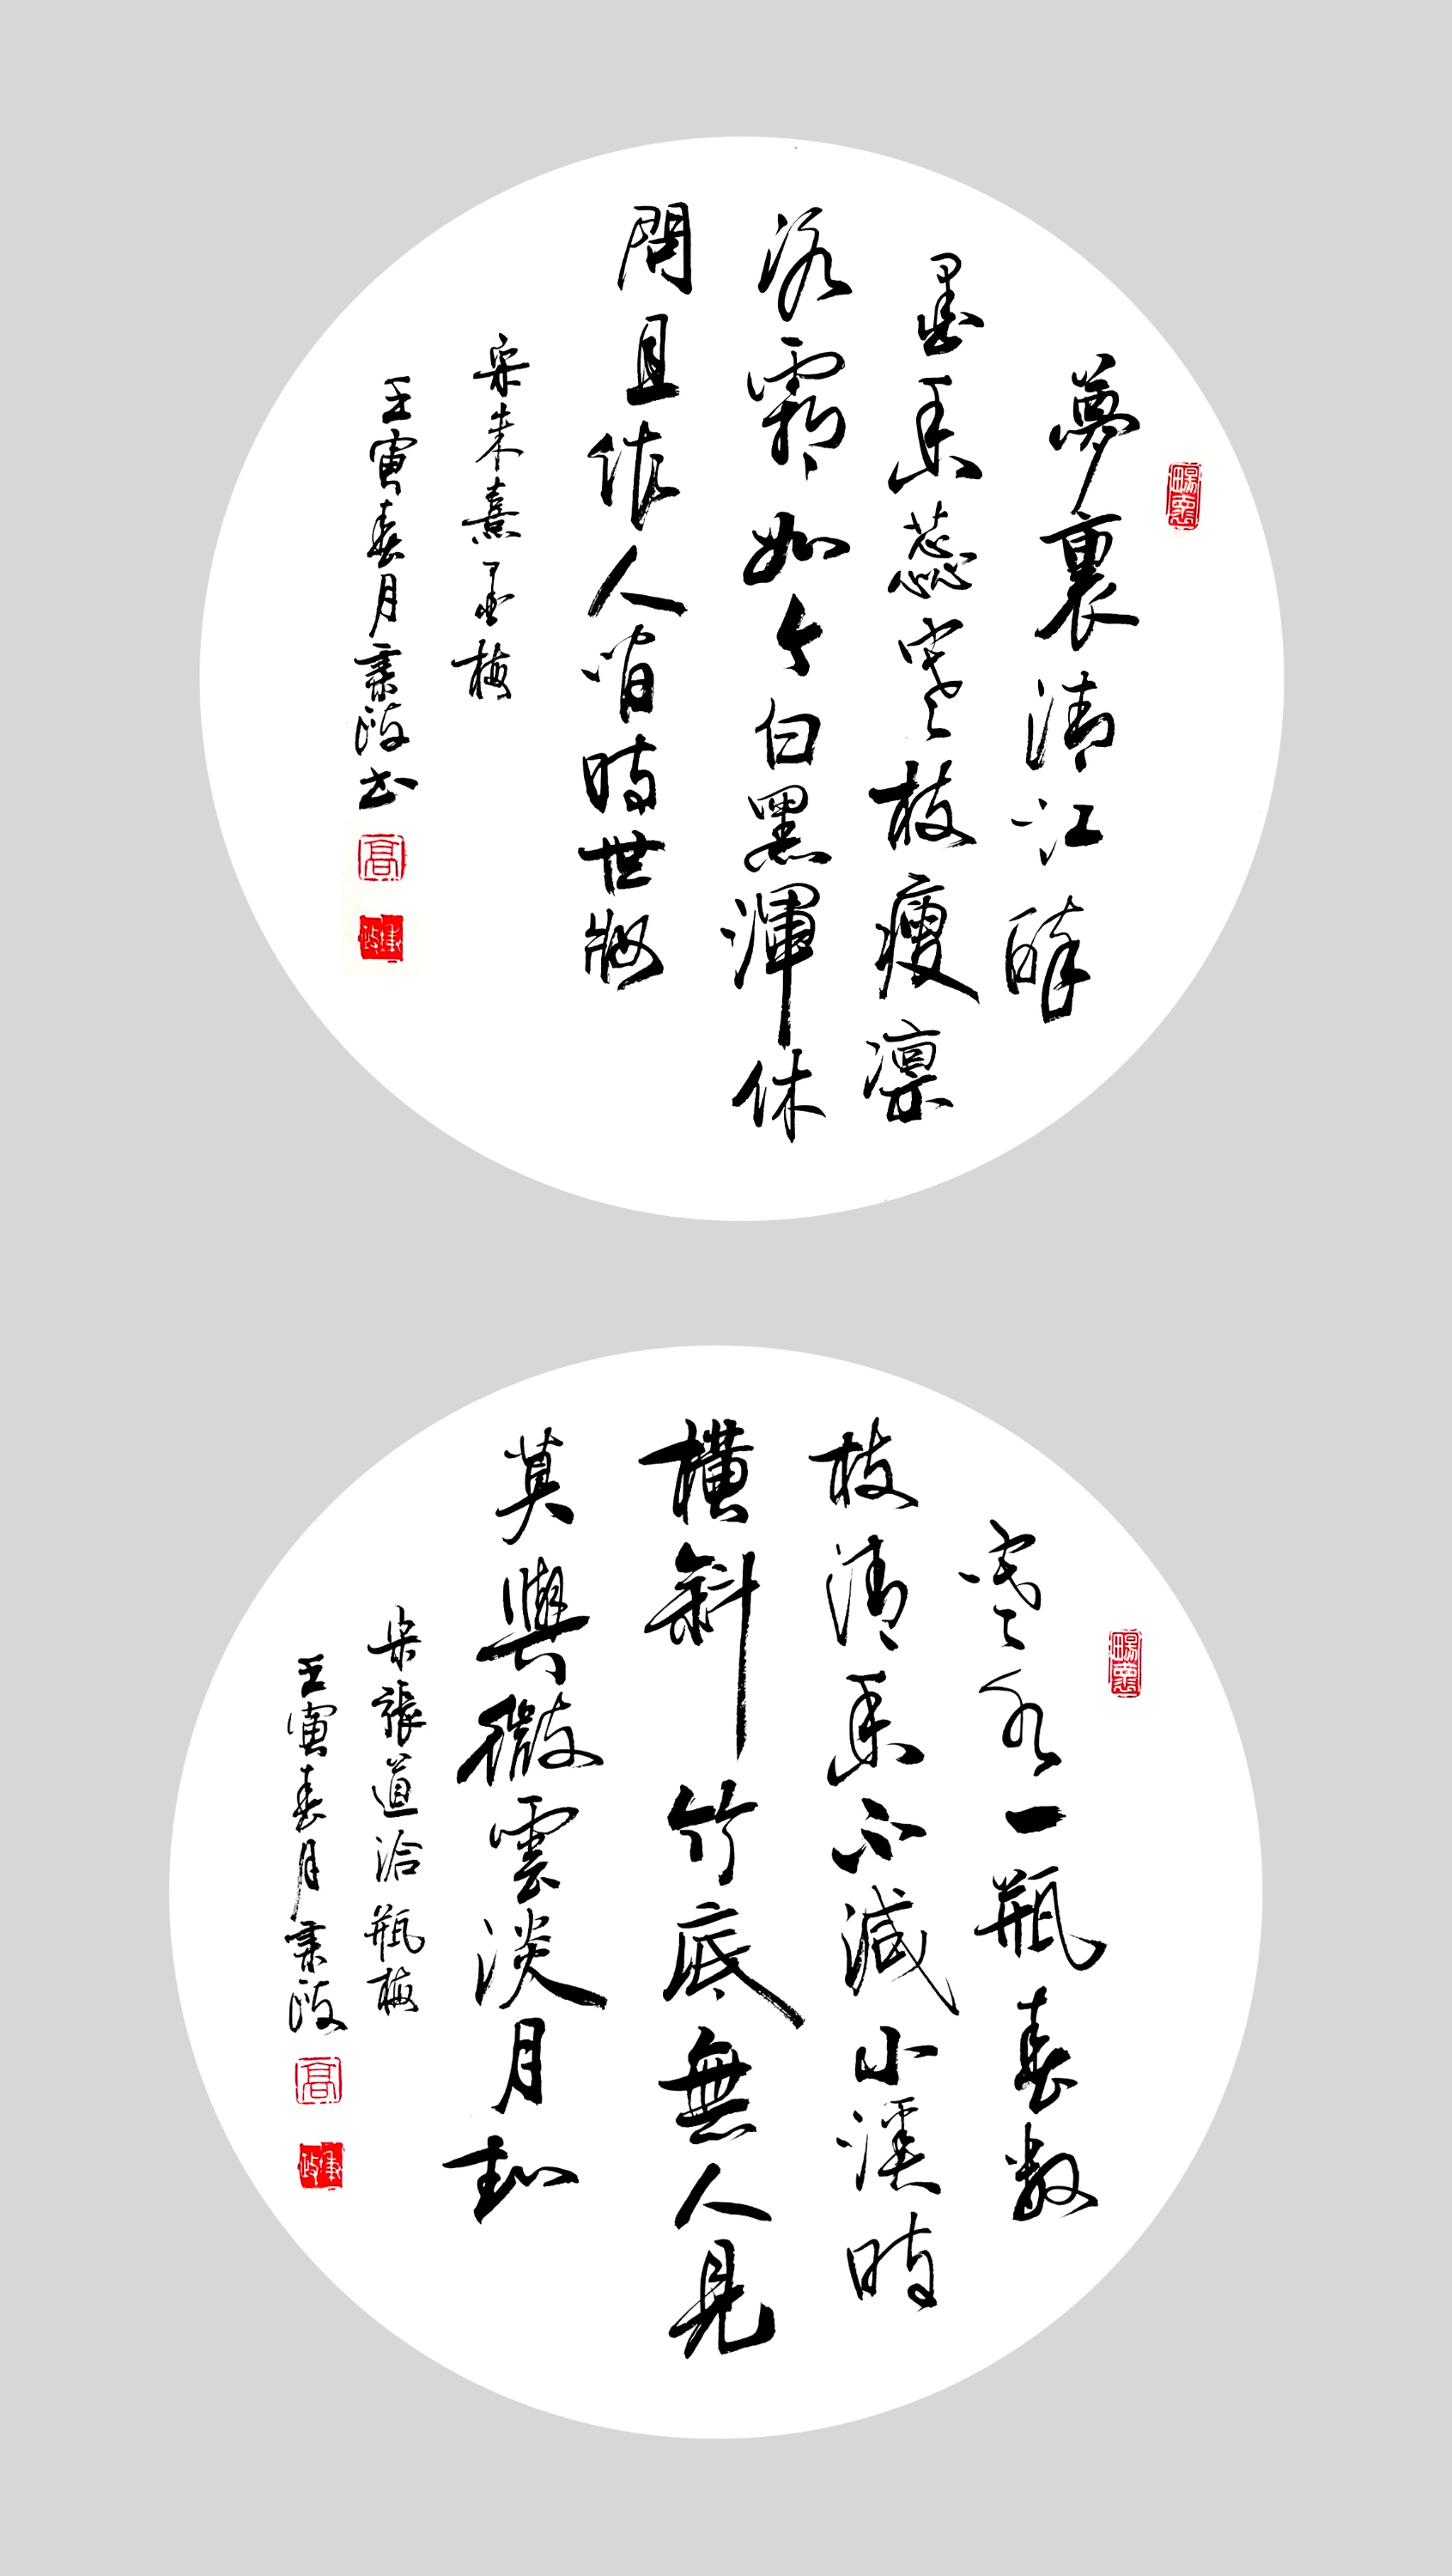 暢懷
夢裏清江醉
墨香蕊寒枝瘦凛
冰霜如今白黑渾休
問且作人間時世妝
宋朱熹墨梅
壬寅春月秉政书
高
秉政
暢懷
寒水一瓶春数
枝清香不減小溪時
横斜竹底無人見
莫與微雲淡月知
宋張道洽瓶梅
壬寅春月秉政
高
秉政